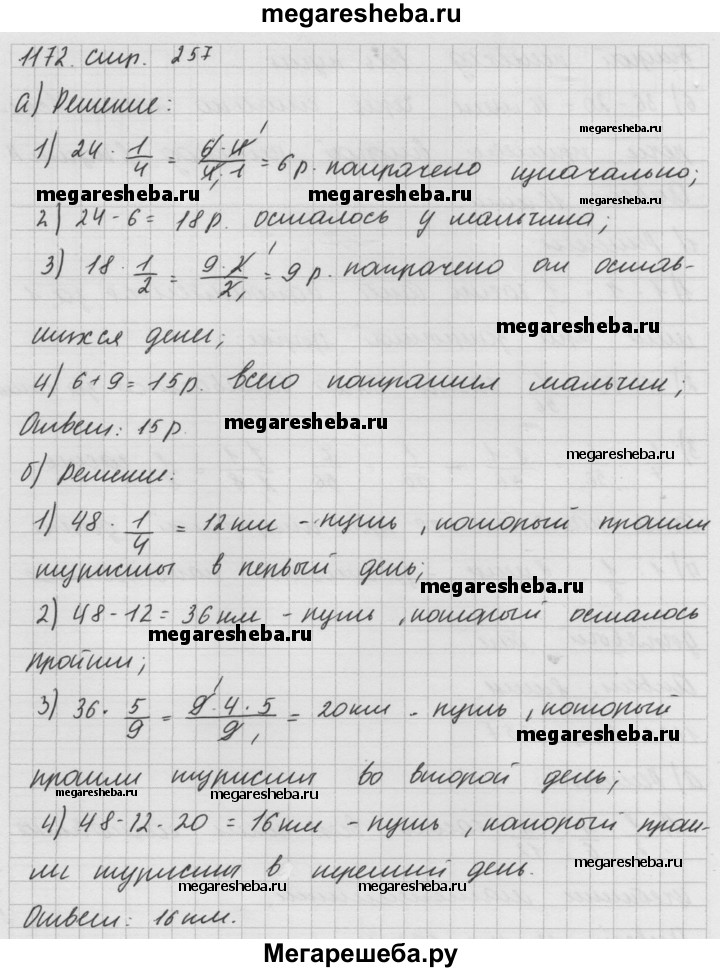 megaresheba.ru
1172. стр. 257
а) Решение:
megaresheba.ru
1) 24 · 1/4 = 6·4/4·1 = 6 р. потрачено изначально;
megaresheba.ru megaresheba.ru
2) 24 - 6 = 18 р. осталось у мальчика;
3) 18 · 1/2 = 9·2/2 = 9 р. потрачено от остав-
шихся денег;
megaresheba.ru
4) 6+9 = 15 р. всего потратил мальчик;
Ответ: 15 р.
megaresheba.ru
megaresheba.ru
б) Решение:
1) 48 · 1/4 = 12 км - путь, который прошли
туристы в первый день;
megaresheba.ru
2) 48 - 12 = 36 км - путь, который осталось
megaresheba.ru
пройти;
3) 36 · 5/9 = 9·4·5/9 = 20 км - путь, который
megaresheba.ru
прошли туристы во второй день;
megaresheba.ru megaresheba.ru
4) 48-12-20 = 16 км - путь, который прош-
ли туристы в третий день.
megaresheba.ru
megaresheba.ru megaresheba.ru
Ответ: 16 км.
Мегарешеба.ру